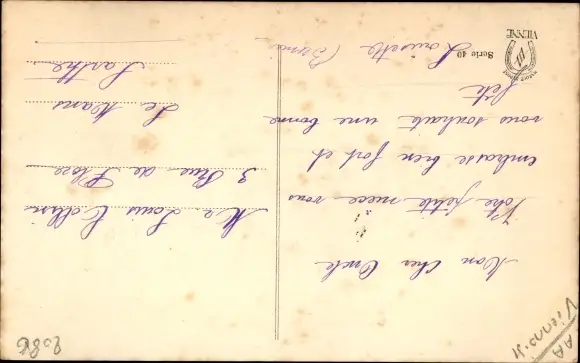 Mon Cher Oncle
Votre petite niece vous
embrasse bien fort et
vous souhaite une bonne
fête
Louisette
Mr Louis
3 Rue de Flore
Le Mans
Sarthe
VIENNE
Serie 40
2086
AA